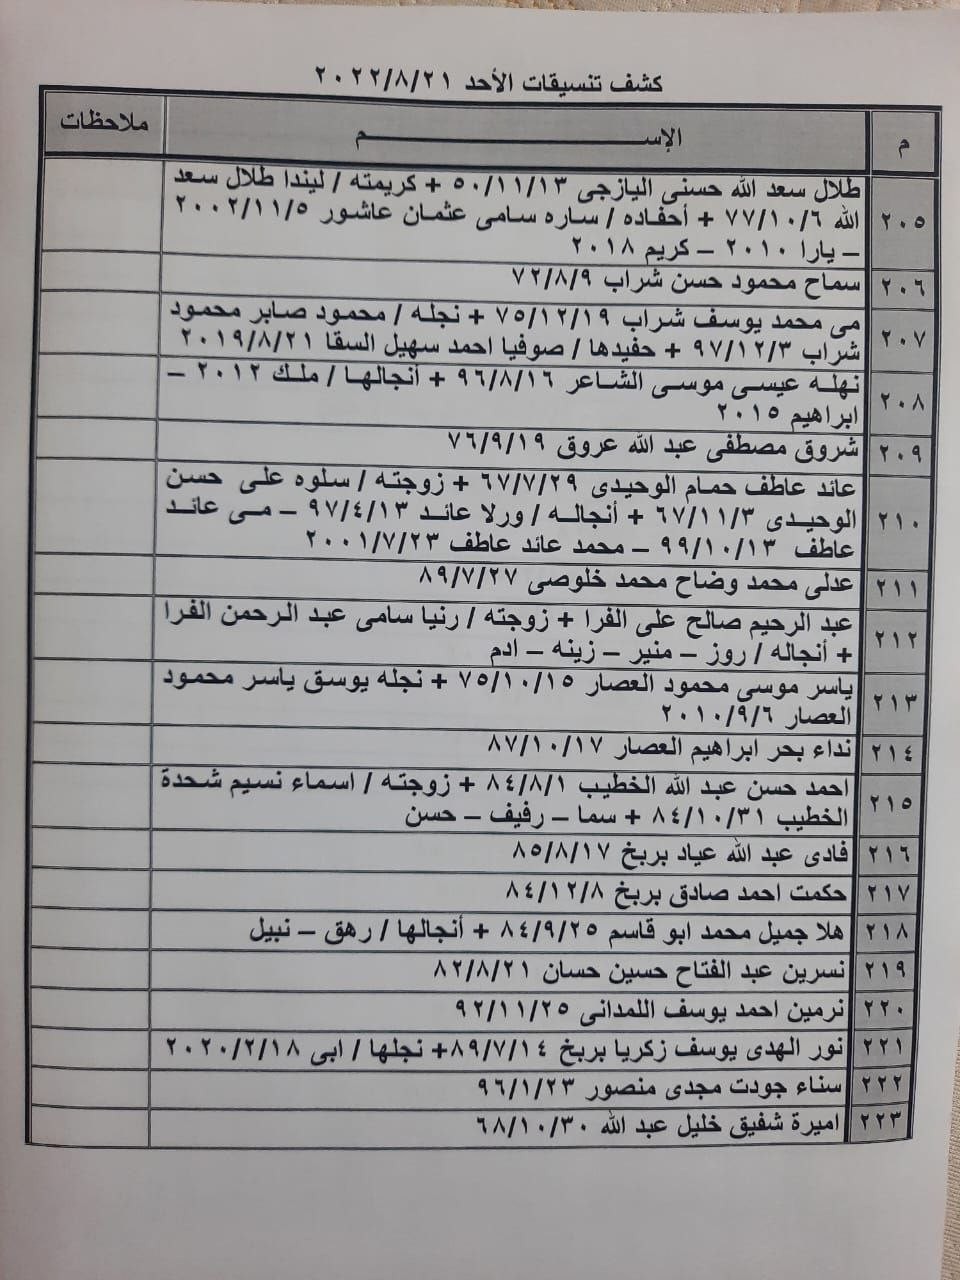 كشف تنسيقات الأحد ٢٠٢٢/٨/٢١
م الإســـــــــم ملاحظات
٢٠٥ طلال سعد الله حسنى اليازجى ٥٠/١١/١٣ + كريمته / ليندا طلال سعد
الله ٧٧/١٠/٦ + أحفاده / ساره سامى عثمان عاشور ٢٠٠٢/١١/٥
– يارا ٢٠١٠ – كريم ٢٠١٨
٢٠٦ سماح محمود حسن شراب ٧٢/٨/٩
٢٠٧ مى محمد يوسف شراب ٧٥/١٢/١٩ + نجله / محمود صابر محمود
شراب ٩٧/١٢/٣ + حفيدها / صوفيا احمد سهيل السقا ٢٠١٩/٨/٢١
٢٠٨ نهله عيسى موسى الشاعر ٩٦/٨/١٦ + أنجالها / ملك ٢٠١٢ –
ابراهيم ٢٠١٥
٢٠٩ شروق مصطفى عبد الله عروق ٧٦/٩/١٩
٢١٠ عائد عاطف حمام الوحيدى ٦٧/٧/٢٩ + زوجته / سلوه على حسن
الوحيدى ٦٧/١١/٣ + أنجاله / ورلا عائد ٩٧/٤/١٣ – مى عائد
عاطف ٩٩/١٠/١٣ – محمد عائد عاطف ٢٠٠١/٧/٢٣
٢١١ عدلى محمد وضاح محمد خلوصى ٨٩/٧/٢٧
٢١٢ عبد الرحيم صالح على الفرا + زوجته / رنيا سامى عبد الرحمن الفرا
+ أنجاله / روز – منير – زينه – ادم
٢١٣ ياسر موسى محمود العصار ٧٥/١٠/١٥ + نجله يوسق ياسر محمود
العصار ٢٠١٠/٩/٦
٢١٤ نداء بحر ابراهيم العصار ٨٧/١٠/١٧
٢١٥ احمد حسن عبد الله الخطيب ٨٤/٨/١ + زوجته / اسماء نسيم شحدة
الخطيب ٨٤/١٠/٣١ + سما – رفيف – حسن
٢١٦ فادى عبد الله عياد بربخ ٨٥/٨/١٧
٢١٧ حكمت احمد صادق بربخ ٨٤/١٢/٨
٢١٨ هلا جميل محمد ابو قاسم ٨٤/٩/٢٥ + أنجالها / رهق – نبيل
٢١٩ نسرين عبد الفتاح حسين حسان ٨٢/٨/٢١
٢٢٠ نرمين احمد يوسف اللمدانى ٩٢/١١/٢٥
٢٢١ نور الهدى يوسف زكريا بربخ ٨٩/٧/١٤+ نجلها / ابى ٢٠٢٠/٢/١٨
٢٢٢ سناء جودت مجدى منصور ٩٦/١/٢٣
٢٢٣ اميرة شفيق خليل عبد الله ٦٨/١٠/٣٠